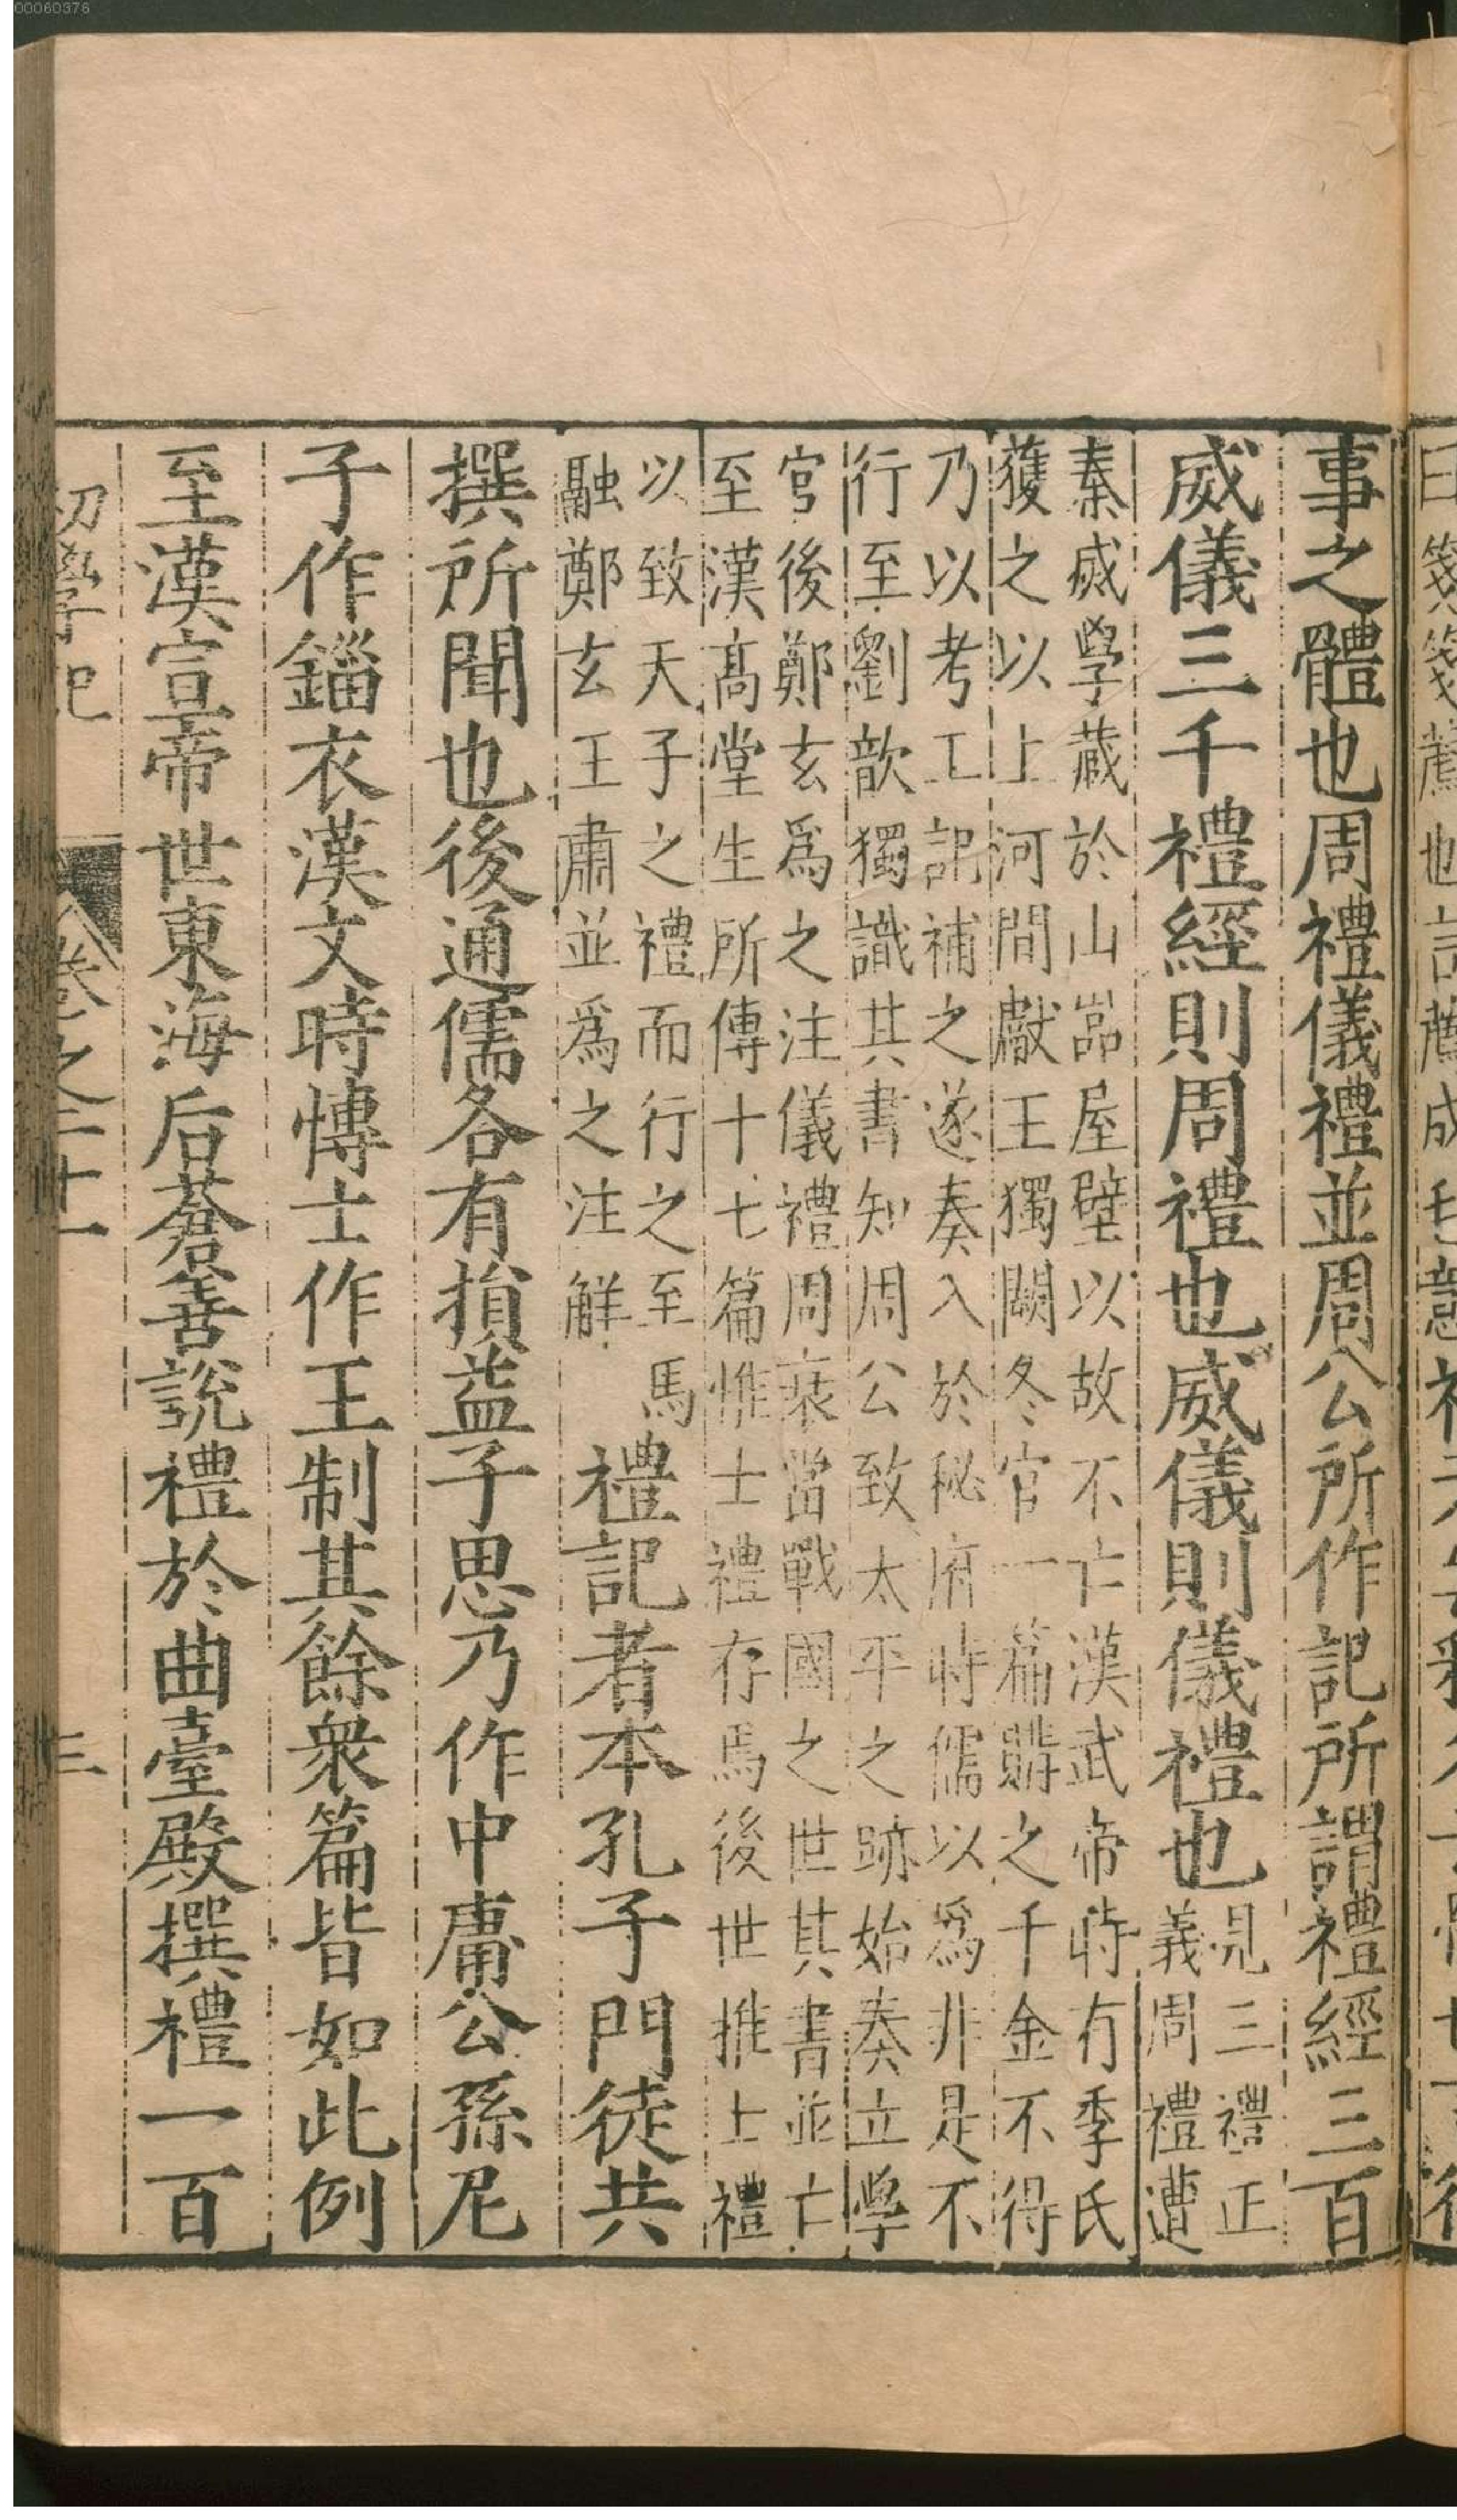 00060376
事之體也周禮儀禮並周公所作記所謂禮經三百
威儀三千禮經則周禮也威儀則儀禮也見三禮正
義周禮遭
秦烕學藏於山嵓屋壁以故不亡漢武帝時有季氏
獲之以上河間獻王獨闕冬官一篇購之千金不得
乃以考工記補之遂奏入於秘府時儒以爲非是不
行至劉歆獨識其書知周公致太平之跡始奏立學
官後鄭玄爲之注儀禮周衰當戰國之世其書並亡
至漢高堂生所傳十七篇惟士禮存焉後世推士禮
以致天子之禮而行之至馬
融鄭玄王肅並爲之注解
禮記者本孔子門徒共
撰所聞也後通儒各有損益子思乃作中庸公孫尼
子作緇衣漢文時愽士作王制其餘衆篇皆如此例
至漢宣帝世東海后蒼善說禮於曲臺殿撰禮一百
初學記
卷之二十一
三